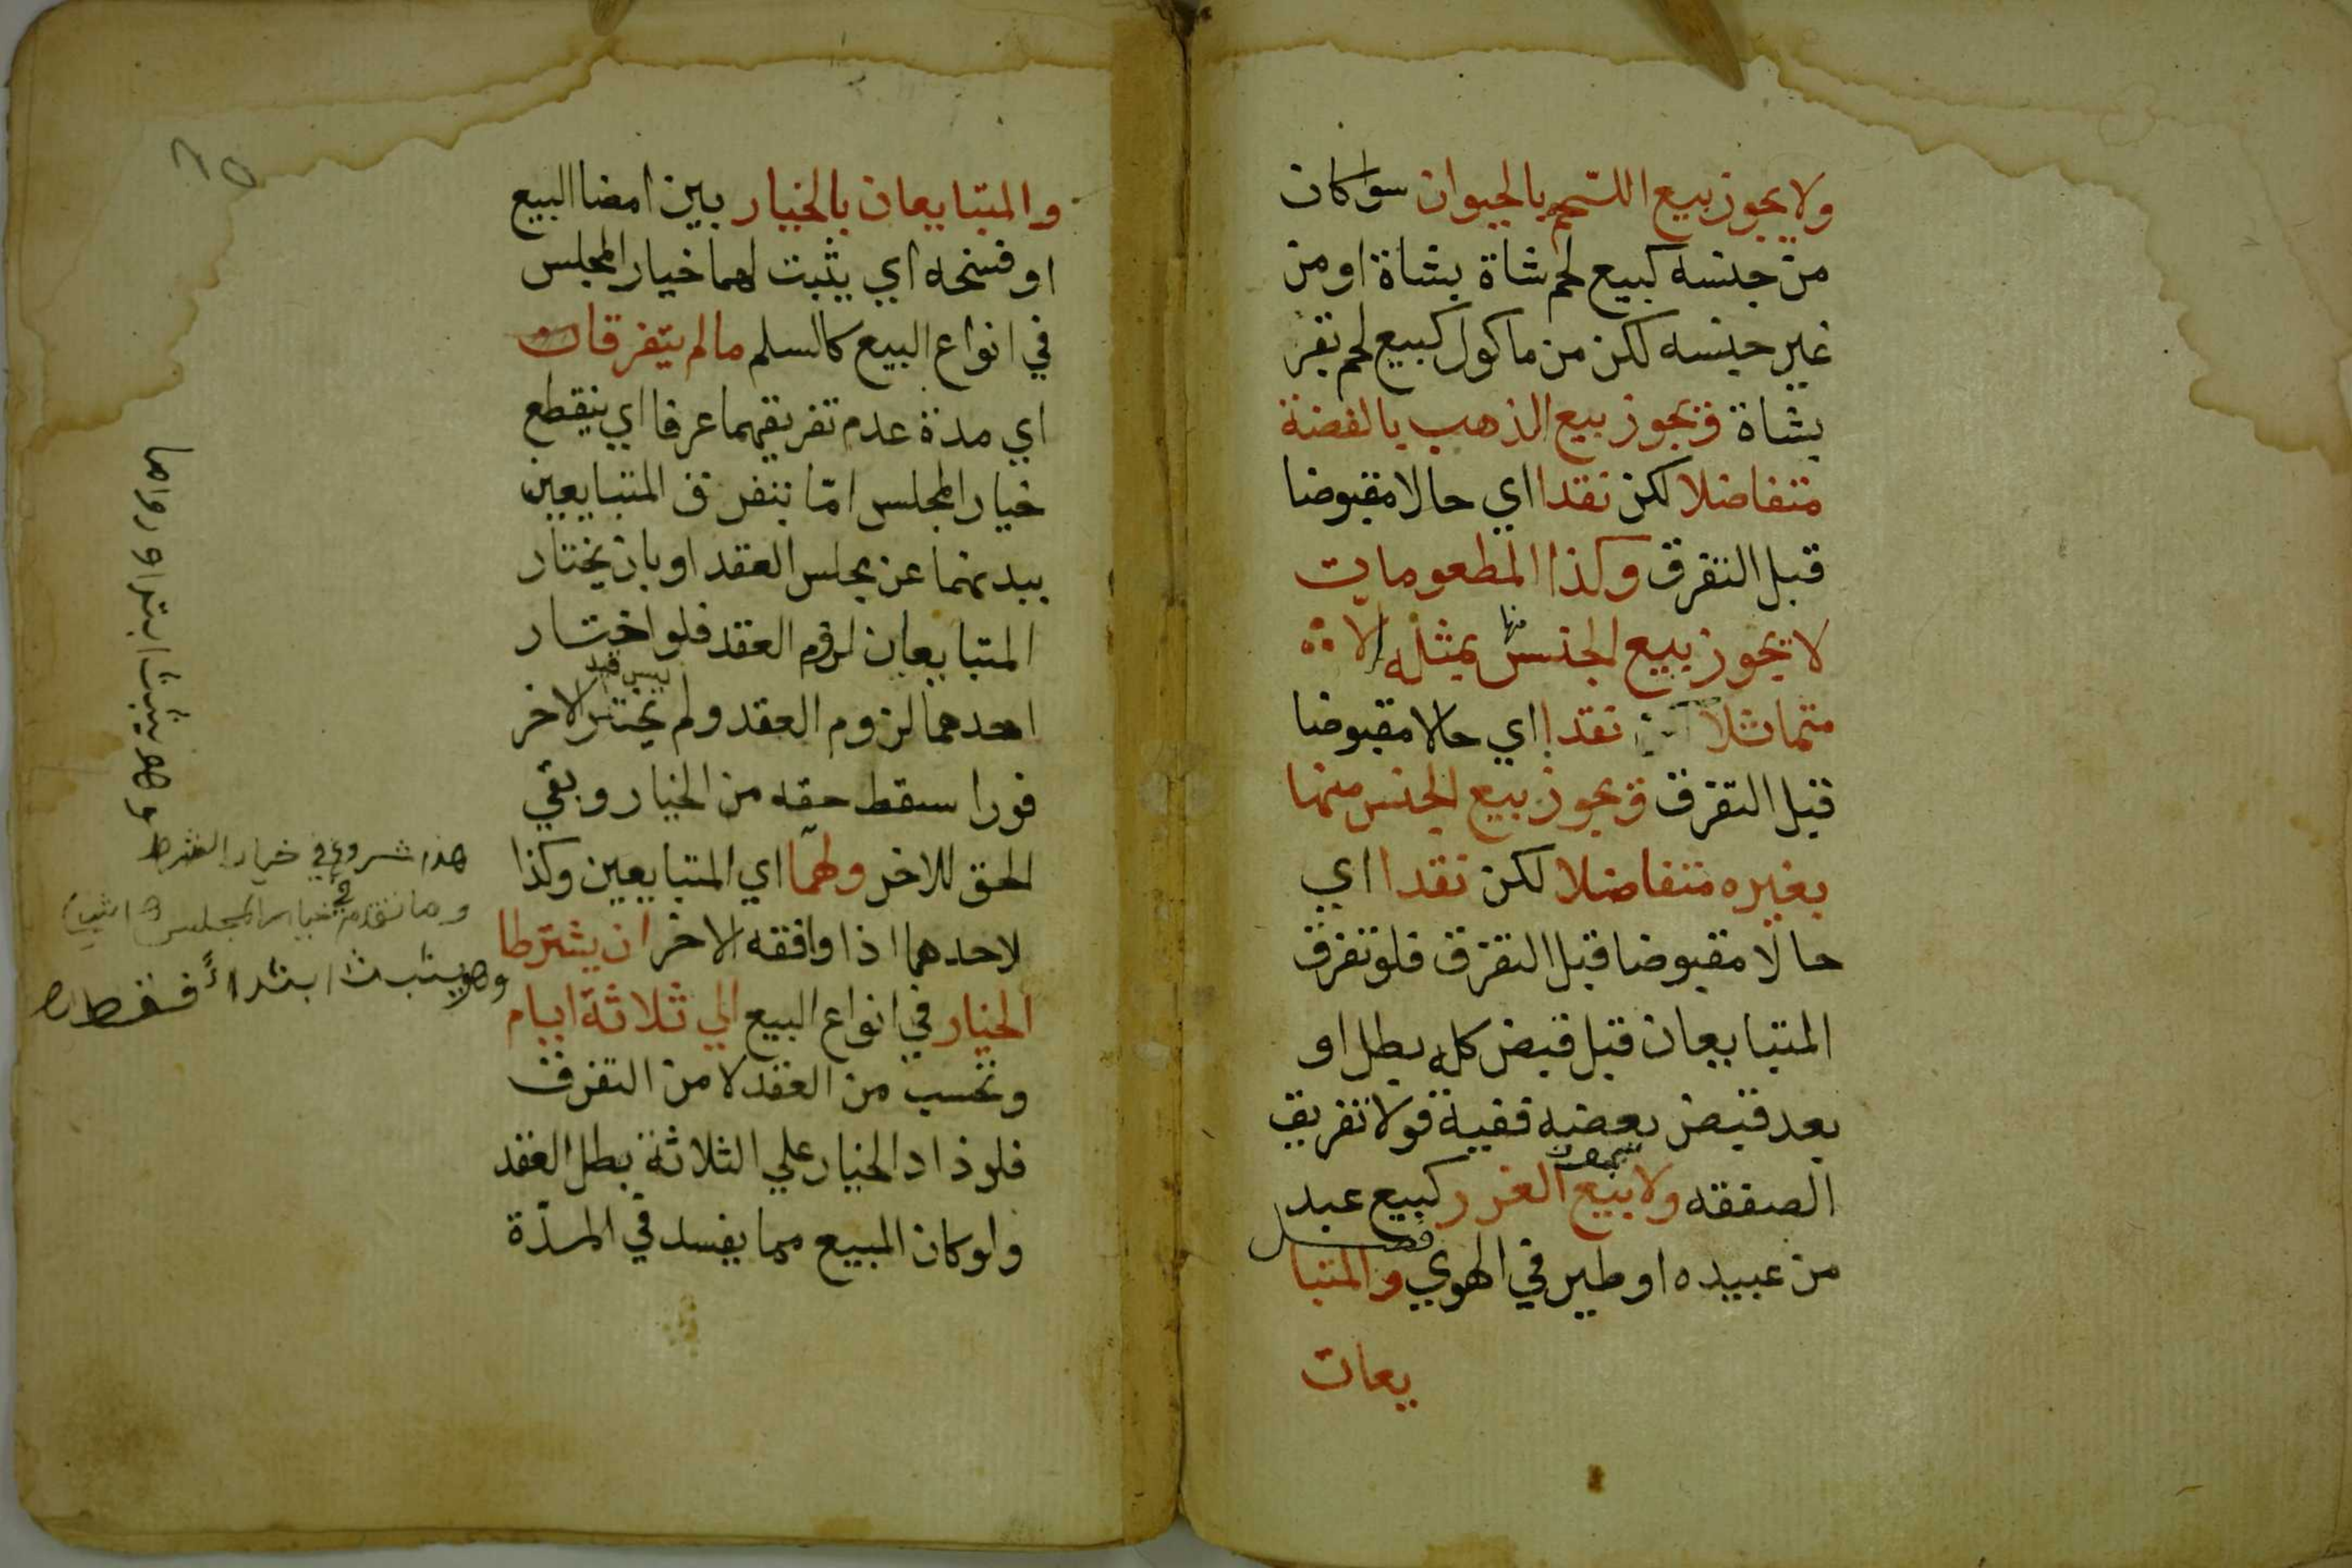 ولا يجوز بيع اللحم بالحيوان سوا كان
من جنسه كبيع لحم شاة بشاة او من
غير جنسه لكن من ماكول كبيع لحم بقر
بشاة ويجوز بيع الذهب بالفضة
متفاضلا لكن نقدا اي حالا مقبوضا
قبل التفرق وكذا المطعومات
لا يجوز بيع الجنس منها بمثله الا
متماثلا نقدا اي حالا مقبوضا
قبل التفرق ويجوز بيع الجنس منها
بغيره متفاضلا لكن نقدا اي
حالا مقبوضا قبل التفرق فلو تفرق
المتبايعان قبل قبض كله بطل او
بعد قبض بعضه ففيه قولا تفريق
الصفقه ولا بيع الغرر كبيع عبد
من عبيده او طير في الهوي فصل والمتبا
يعان
٦٥
والمتبايعان بالخيار بين امضا البيع
او فسخه اي يثبت لهما خيار المجلس
في انواع البيع كالسلم مالم يتفرقا
اي مدة عدم تفريقهما عرفا اي ينقطع
خيار المجلس امّا بتفرق المتبايعين
ببدنهما عن مجلس العقد او بان يختار
المتبايعان لزوم العقد فلو اختار
احدهما لزوم العقد ولم يختر الاخر
فورا سقط حقه من الخيار وبقي
الحق للاخر ولهما اي المتبايعين وكذا
لاحدهما اذا وافقه الاخر ان يشترطا
الخيار في انواع البيع الي ثلاثة ايام
وتحسب من العقد لا من التفرق
فلو زاد الخيار علي الثلاثة بطل العقد
ولو كان المبيع مما يفسد في المدّة
هذا شروع في خيار الشرط
وما تقدم في خيار المجلس
وهو يثبت ابتداءً فقط
وهو يثبت ابتدا ودواما